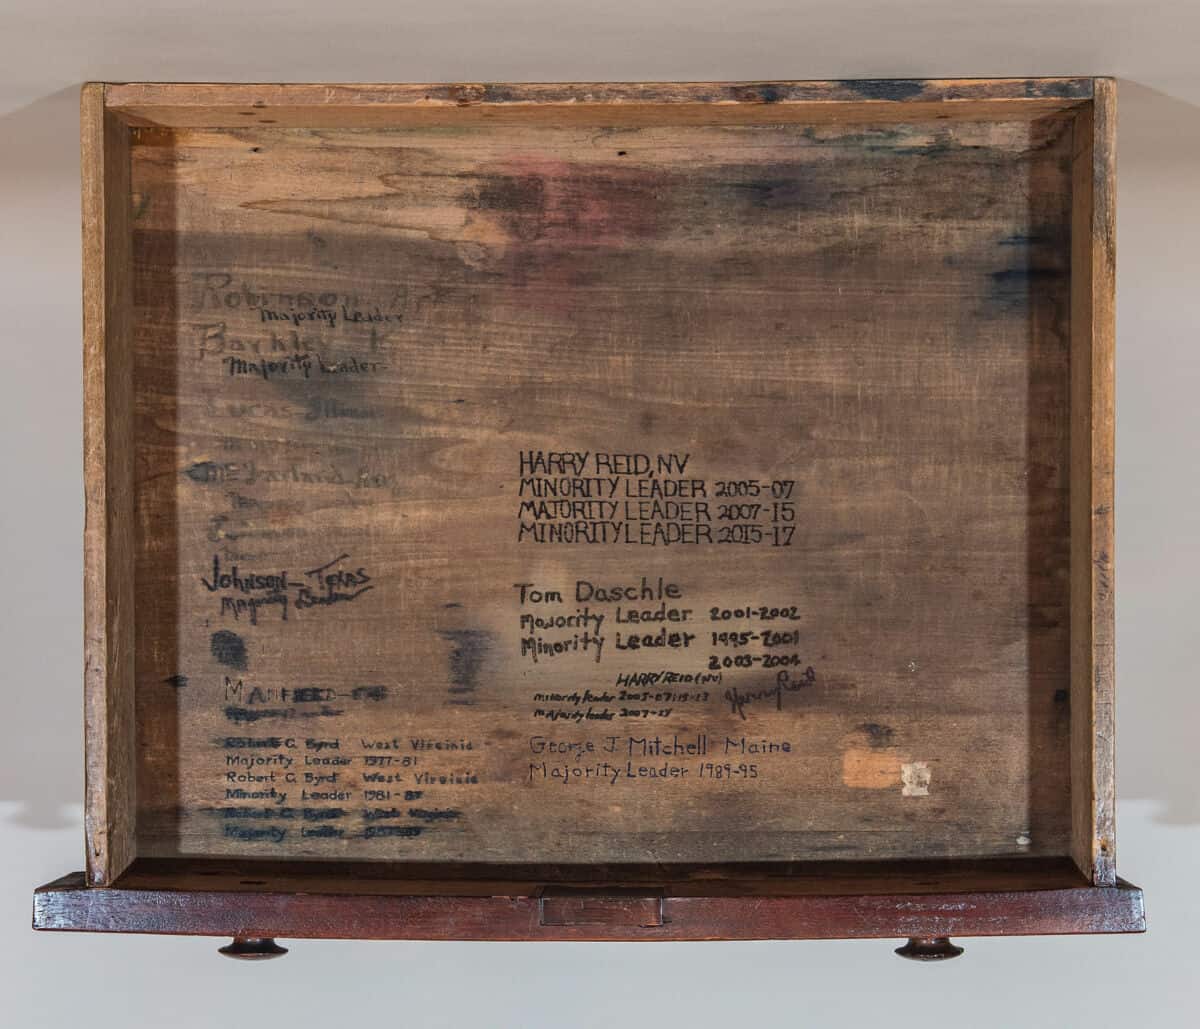 Robinson Ark
Majority Leader
Barkley K
Majority Leader
Lucas-Illinois
McFarland
Johnson-Texas
Majority Leader
Robert C. Byrd West Virginia
Majority Leader 1977-81
Robert C. Byrd West Virginia
Minority Leader 1981-87
Robert C. Byrd West Virginia
Majority Leader
HARRY REID, NV
MINORITY LEADER 2005-07
MAJORITY LEADER 2007-15
MINORITY LEADER 2015-17
Tom Daschle
Majority Leader 2001-2002
Minority Leader 1995-2001
2003-2004
HARRY REID (NV)
minority leader 2005-07;
majority leader 2007-
Harry Reid
George J. Mitchell Maine
Majority Leader 1989-95